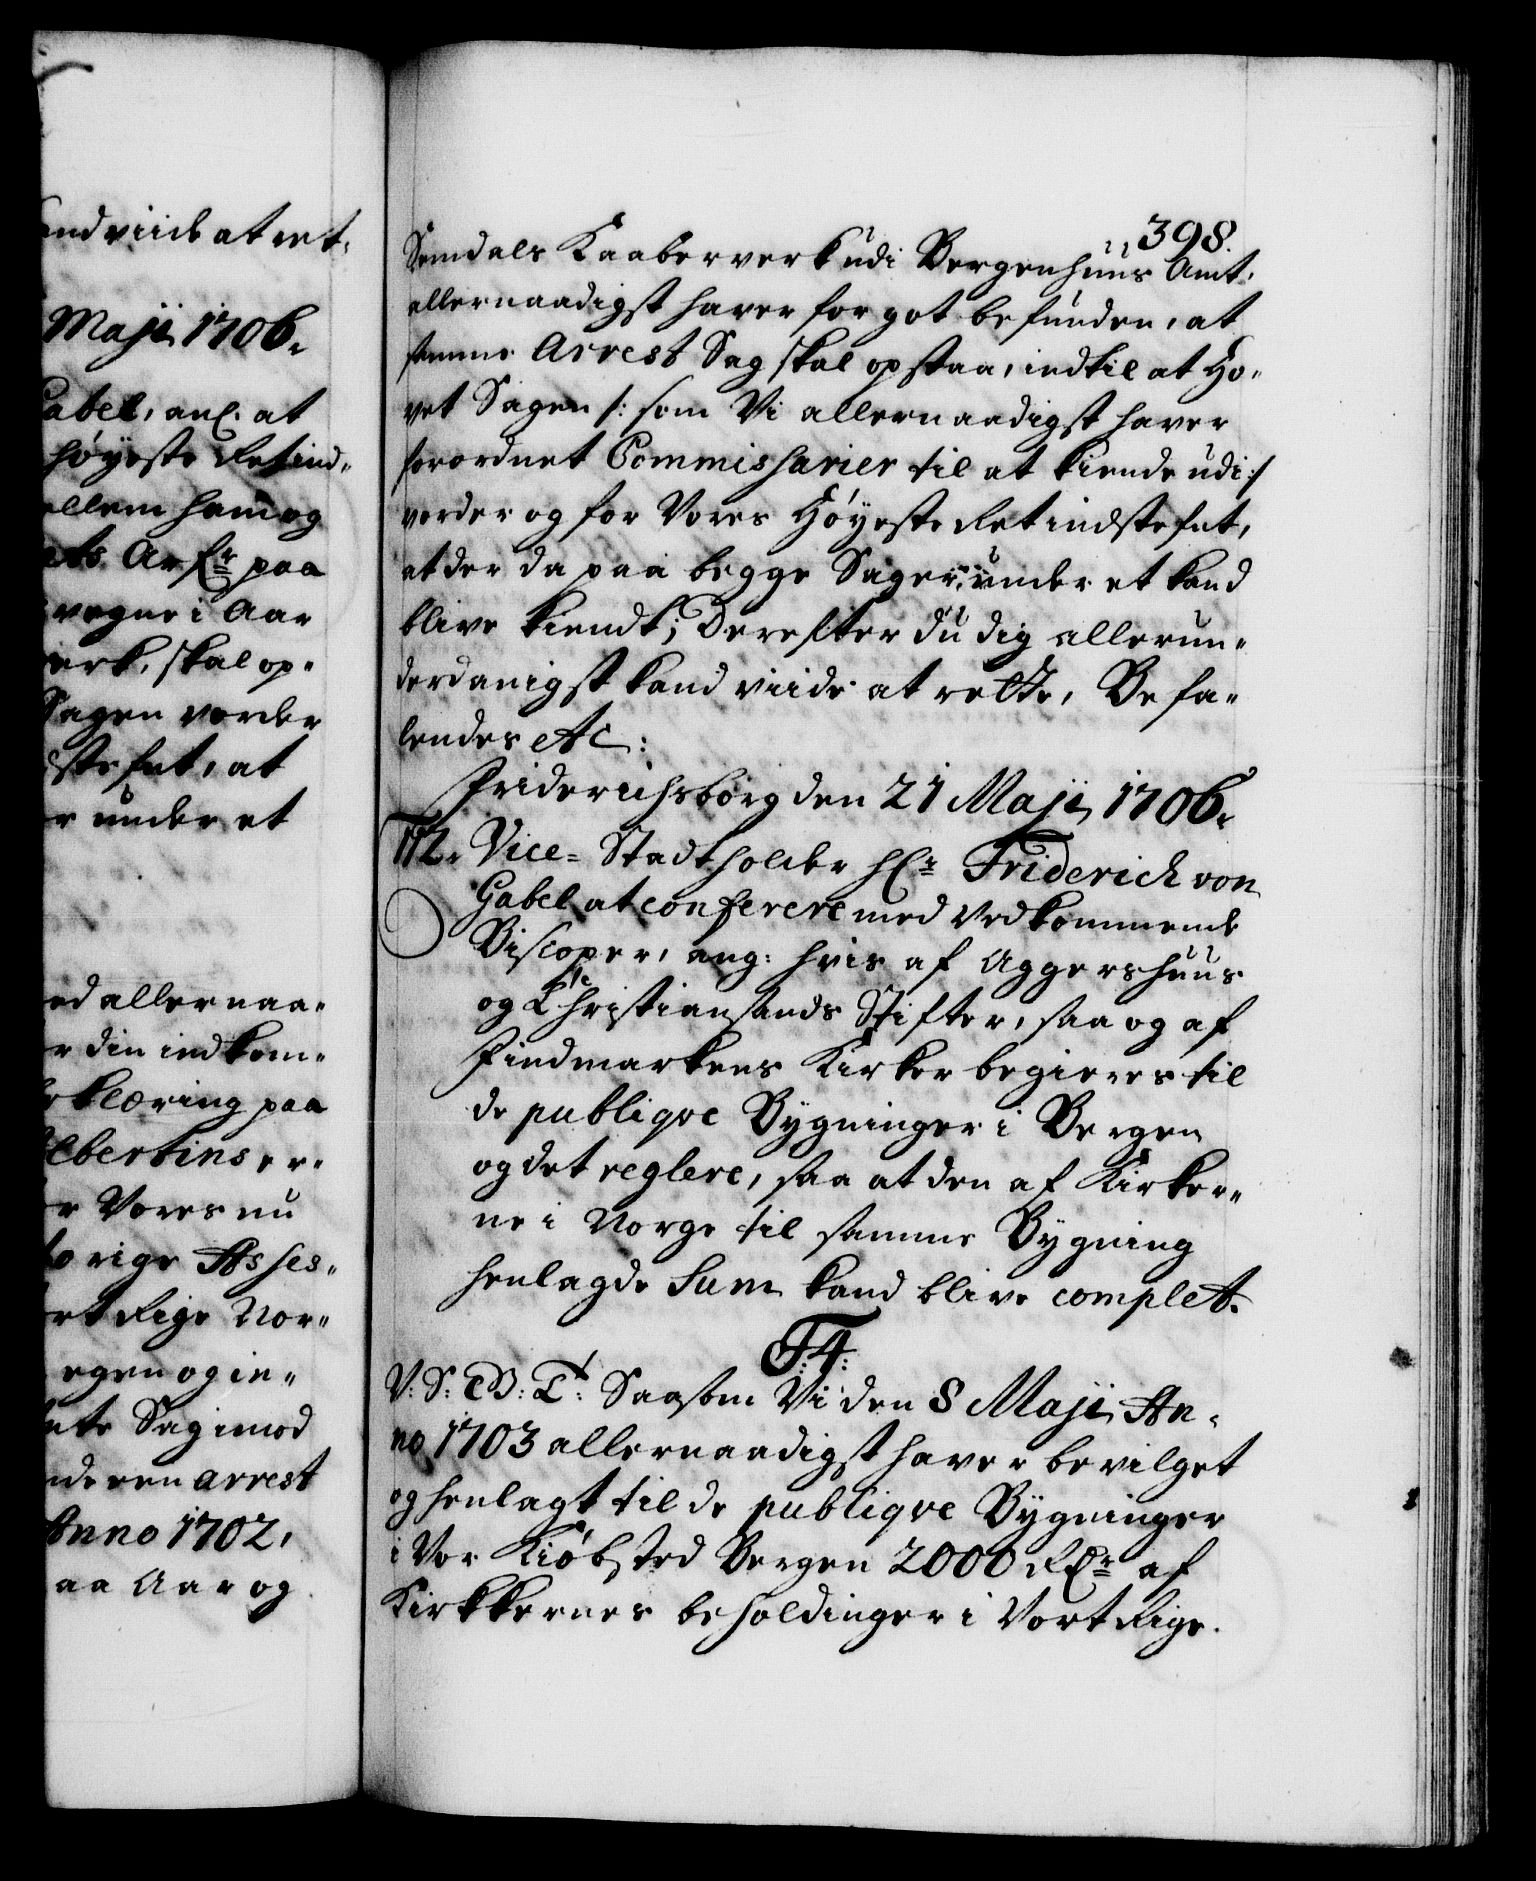 and viide at ret-
Maji 1706.
Gabel, anl. at
høyeste Ret ind-
ellem ham og
ets Arfr paa
vegne i Aar
erk, skal op-
Sagen vorder
stefnt, at
r under et
ed allernaa-
r din indkom-
rklæring paa
lbertins er-
r Vores nu
forige Asses-
rt Rige Nor-
egen og in-
nte Sag imod
nde een arrest
Anno 1702,
aa Aar og
398.
Semdals Kaaberverk udi Bergenhuus Amt,
allernaadigst haver for got befunden, at
samme Arrest Sag skal opstaa, indtil at Ho-
vet Sagen /: som Vi allernaadigst haver
forordnet Commissarier til at kiende udi :/
vorder og for Vores Høyeste Ret indstefnt,
at der da paa begge Sager under et kand
blive kiendt; Derefter du dig allerun-
derdanigst kand viide at rette, Befa-
lendes etc:
Friderichsborg den 21 Maji 1706.
112. Vice-Stadtholder Hr Friderich von
Gabel at conferere med Vedkommende
Biscoper, ang: hvis af Aggershuus
og Christiansands Stifter, saa og af
Findmarkens Kirker begieres til
de publiqve Bygninger i Bergen
og det reglere, saa at den af Kirker-
ne i Norge til samme Bygning
henlagde Sum kand blive complet.
F:4:
V: S: G: B: T: Saasom Vi den 8 Maji An-
no 1703 allernaadigst haver bevilget
og henlagt til de publiqve Bygninger
i Vor Kiøbsted Bergen 2000 Rdr af
Kirkkernes beholdinger i Vort Rige.